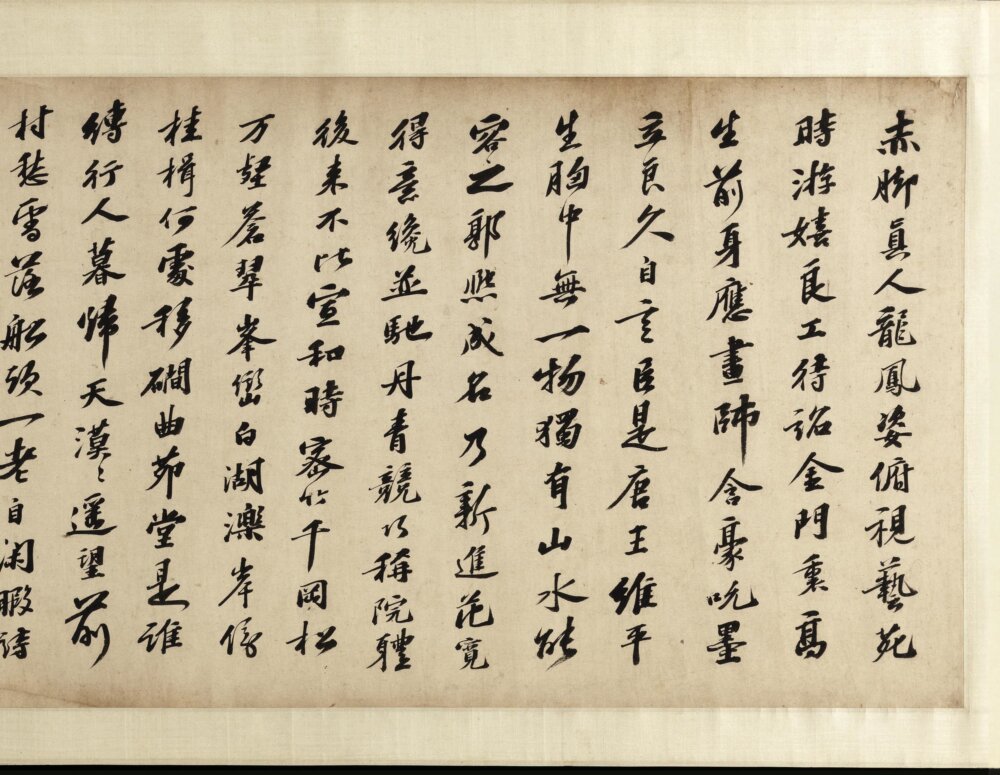 赤脚真人龍鳳姿俯視藝苑
時游嬉良工待詔金門裏高
生前身應畫師含豪吮墨
亦良久自言臣是唐王維平
生胸中無一物獨有山水能
容之郭熙成名乃新進范寬
得意纔並馳丹青競以稱院體
後来不比宣和時密竹千岡松
万壑蒼翠峯巒白湖濼岸傍
桂楫何處移磵曲茆堂是誰
縛行人暮歸天漠〻遥望前
村愁雪落船頭一老自閑暇詩